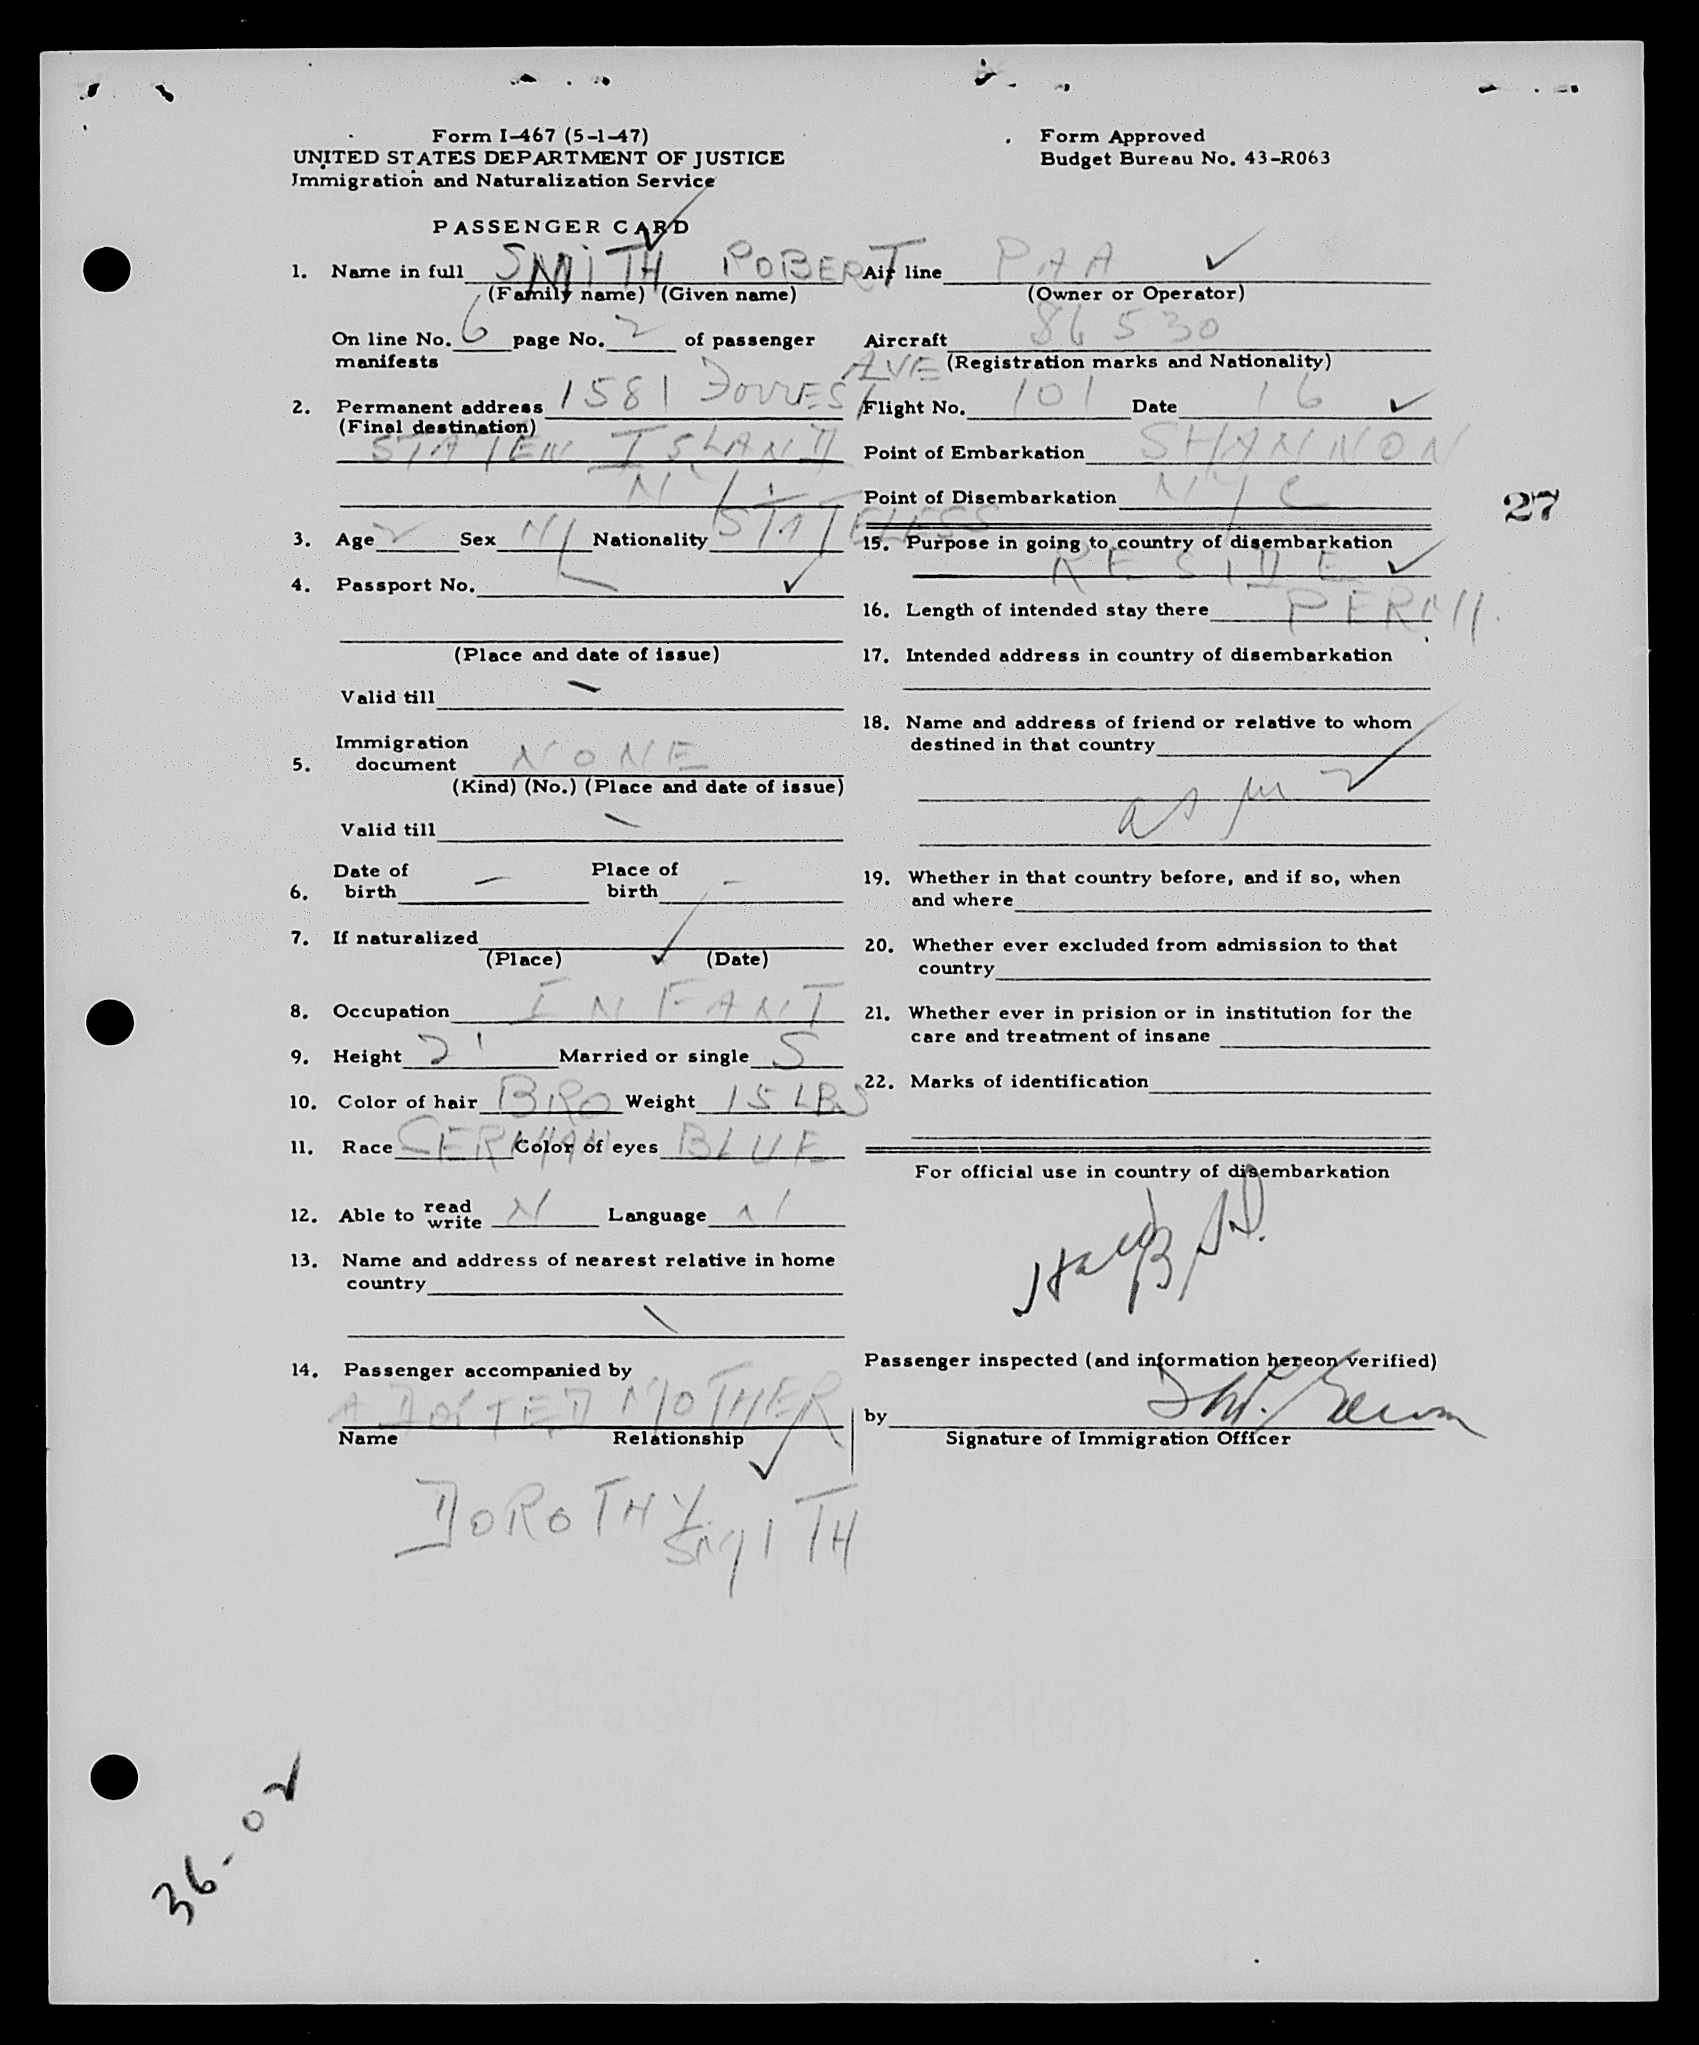 Form I-467 (5-1-47)
UNITED STATES DEPARTMENT OF JUSTICE
Immigration and Naturalization Service
Form Approved
Budget Bureau No. 43-R063
PASSENGER CARD
1. Name in full SMITH ROBERT
(Family name) (Given name)
On line No. 6 page No. 2 of passenger
manifests
2. Permanent address 1581 Forrest AVE
(Final destination)
STATEN ISLAND
N.Y.
3. Age 2 Sex M Nationality STATELESS
4. Passport No.
(Place and date of issue)
Valid till
Immigration
5. document NONE
(Kind) (No.) (Place and date of issue)
Valid till
Date of Place of
6. birth - birth -
7. If naturalized
(Place) (Date)
8. Occupation INFANT
9. Height 2' Married or single S
10. Color of hair BRO Weight 15 LBS
11. Race GERMAN Color of eyes BLUE
12. Able to read write N Language
13. Name and address of nearest relative in home
country
14. Passenger accompanied by
ADOPTED MOTHER
Name Relationship
DOROTHY
SMITH
Air line PAA
(Owner or Operator)
Aircraft 86530
(Registration marks and Nationality)
Flight No. 101 Date 16
Point of Embarkation SHANNON
Point of Disembarkation NYC
27
15. Purpose in going to country of disembarkation
RESIDE
16. Length of intended stay there PERM.
17. Intended address in country of disembarkation
18. Name and address of friend or relative to whom
destined in that country
as per 2
19. Whether in that country before, and if so, when
and where
20. Whether ever excluded from admission to that
country
21. Whether ever in prision or in institution for the
care and treatment of insane
22. Marks of identification
For official use in country of disembarkation
Passenger inspected (and information hereon verified)
by
Signature of Immigration Officer
36-02